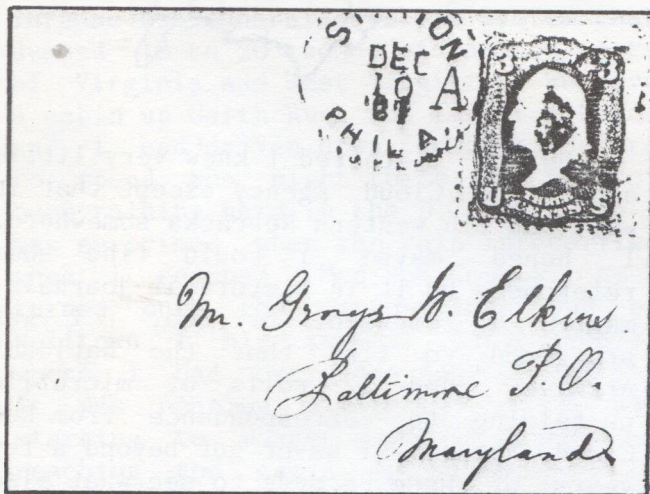 STATION
DEC
10 A
'87
PHILA
3 3
U S
Mr. Grays W. Elkins.
Baltimore P.O.
Maryland